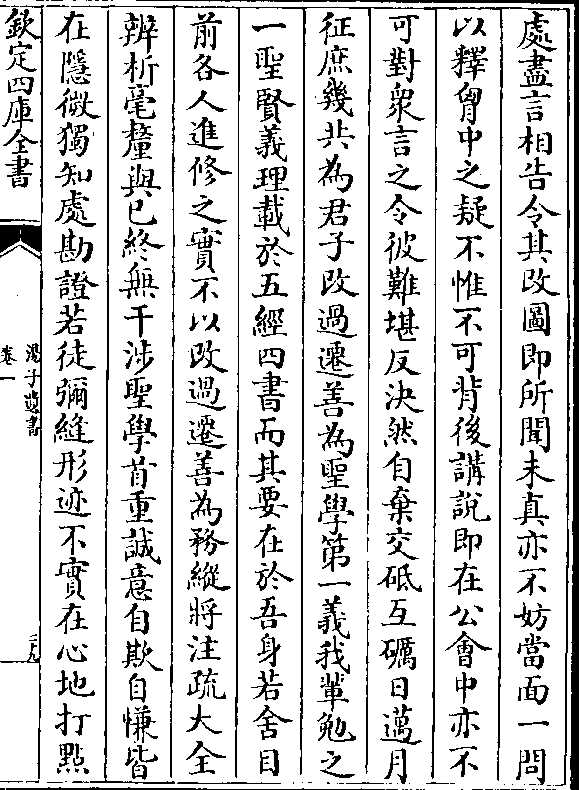 處盡言相告令其改圖即所聞未真亦不妨當面一問
以釋胷中之疑不惟不可背後講說即在公會中亦不
可對衆言之令彼難堪反決然自棄交砥互礪日邁月
征庶幾共為君子改過遷善為聖學第一義我輩勉之
一聖賢義理載於五經四書而其要在於吾身若舍目
前各人進修之實不以改過遷善為務縱將注疏大全
辨析毫釐與已終無干涉聖學首重誠意自欺自慊皆
在隱微獨知處勘證若徒彌縫形迹不實在心地打點
欽定四庫全書
湯子遺書
卷一
二十九